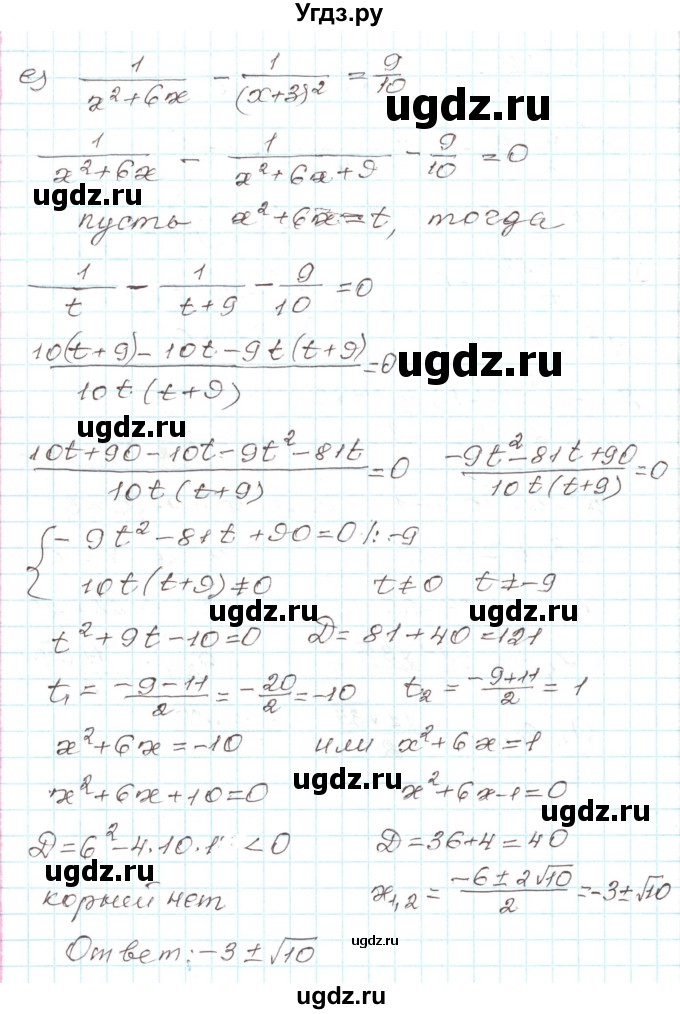 Угдз.ру
е) 1/(x²+6x) - 1/(x+3)² = 9/10
ugdz.ru
1/(x²+6x) - 1/(x²+6x+9) - 9/10 = 0
ugdz.ru
пусть x²+6x=t, тогда
1/t - 1/(t+9) - 9/10 = 0
(10(t+9)-10t-9t(t+9))/(10t(t+9)) = 0
ugdz.ru
ugdz.ru
(10t+90-10t-9t²-81t)/(10t(t+9)) = 0 (-9t²-81t+90)/(10t(t+9)) = 0
{ -9t²-81t+90=0 /:-9
10t(t+9)≠0 t≠0 t≠-9
ugdz.ru ugdz.ru
t²+9t-10=0 D=81+40=121
t₁ = (-9-11)/2 = -20/2 = -10 t₂ = (-9+11)/2 = 1
x²+6x=-10 или x²+6x=1
ugdz.ru
x²+6x+10=0 x²+6x-1=0
ugdz.ru
D=6²-4·10·1 <0 D=36+4=40
ugdz.ru
корней нет x₁,₂ = (-6±2√10)/2 = -3±√10
ugdz.ru
Ответ: -3±√10
ugdz.ru